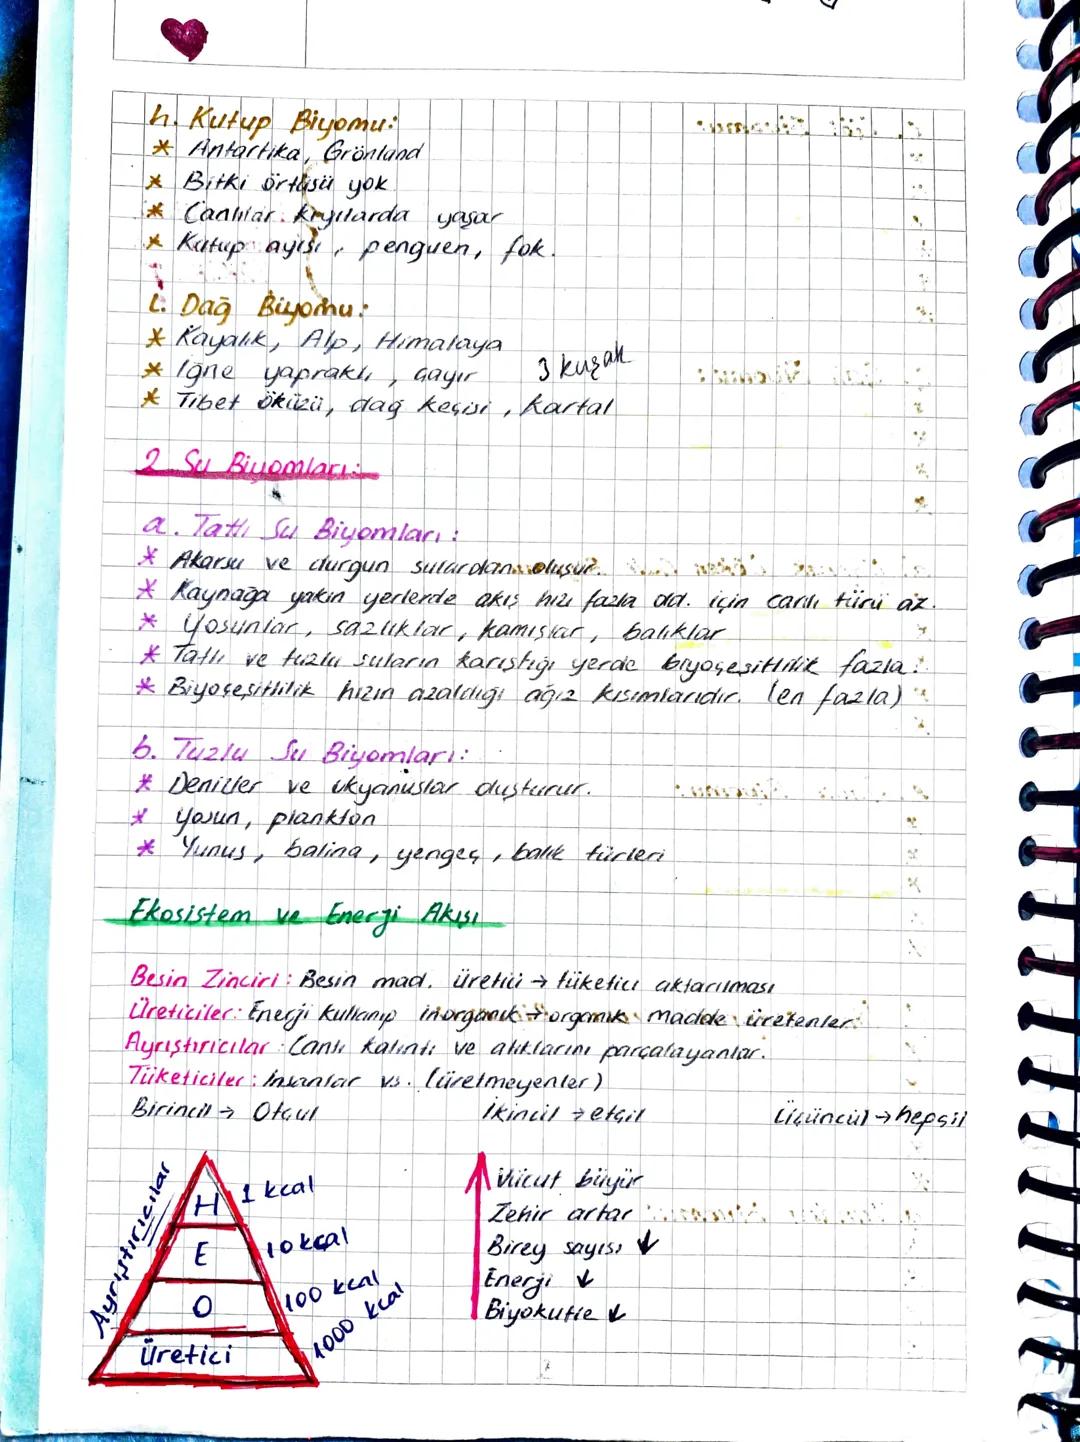 h. Kutup Biyomu:
* Antartika, Grönland
* Bitki örtüsü yok
* Canlılar kıyılarda yaşar
* Kutup ayısı, penguen, fok.
ı. Dağ Biyomu:
* Kayalık, Alp, Himalaya
* İğne yapraklı, çayır 3 kuşak
* Tibet öküzü, dağ keçisi, kartal
2. Su Biyomları:
a. Tatlı Su Biyomları:
* Akarsu ve durgun sulardan oluşur.
* Kaynağa yakın yerlerde akış hızı fazla old. için canlı türü az.
* Yosunlar, sazlıklar, kamışlar, balıklar
* Tatlı ve tuzlu suların karıştığı yerde biyoçeşitlilik fazla.
* Biyoçeşitlilik hızın azaldığı ağız kısımlarıdır. (en fazla)
b. Tuzlu Su Biyomları:
* Denizler ve okyanuslar oluşturur.
* Yosun, plankton
* Yunus, balina, yengeç, balık türleri
Ekosistem ve Enerji Akışı
Besin Zinciri: Besin mad. üretici → tüketici aktarılması
Üreticiler: Enerji kullanıp inorganik → organik madde üretenler.
Ayrıştırıcılar: Canlı kalıntı ve atıklarını parçalayanlar.
Tüketiciler: İnsanlar vs. (üretmeyenler)
Birincil → Otçul İkincil → etçil Üçüncül → hepçil
Ayrıştırıcılar
H 1 kcal
E 10 kcal
O 100 kcal
Üretici 1000 kcal
Vücut büyür
Zehir artar
Birey sayısı ↓
Enerji ↓
Biyokütle ↓